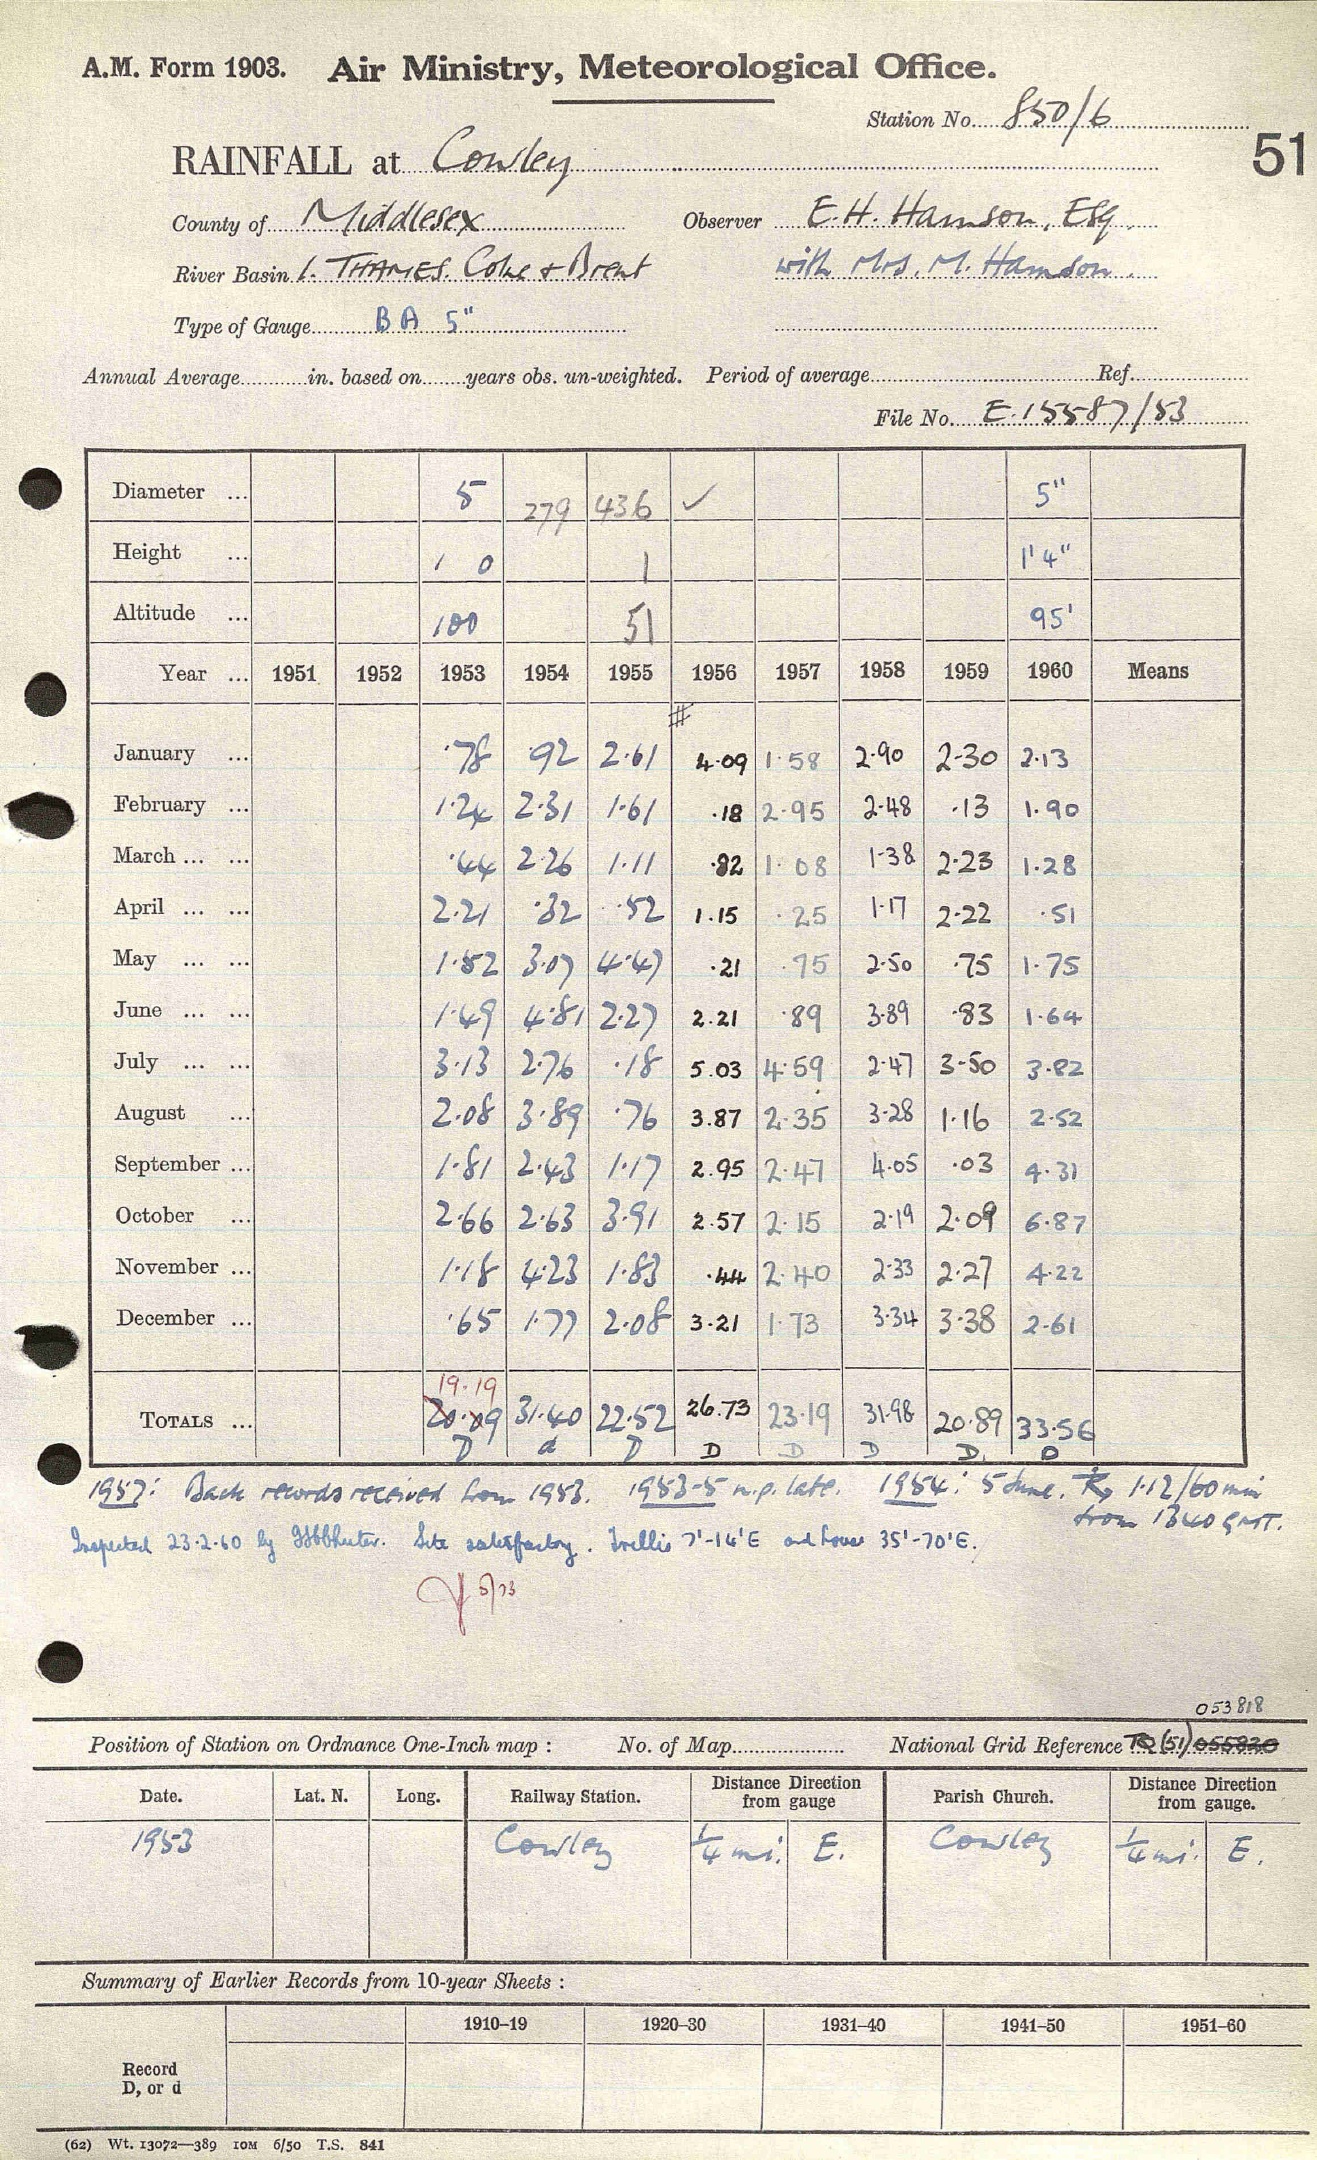 A.M. Form 1903. Air Ministry, Meteorological Office.
Station No. 850/6
51
RAINFALL at Cowley
County of Middlesex Observer E.H. Hamson, Esq.
River Basin 1. THAMES. Colne + Brent with Mrs. M. Hamson.
Type of Gauge BA 5"
Annual Average in. based on years obs. un-weighted. Period of average Ref.
File No. E.15587/53
Diameter ... 5 279 436 ✓ 5"
Height ... 1 0 1 1'4"
Altitude ... 100 51 95'
Year ... 1951 1952 1953 1954 1955 1956 1957 1958 1959 1960 Means
#
January ... ·78 ·92 2·61 4·09 1·58 2·90 2·30 2·13
February ... 1·24 2·31 1·61 ·18 2·95 2·48 ·13 1·90
March ... ... ·44 2·26 1·11 ·32 1·08 1·38 2·23 1·28
April ... ... 2·21 ·32 ·52 1·15 ·25 1·17 2·22 ·51
May ... ... 1·52 3·07 4·47 ·21 ·75 2·50 ·75 1·75
June ... ... 1·49 4·81 2·27 2.21 ·89 3·89 ·83 1·64
July ... ... 3·13 2·76 ·18 5.03 4·59 2·47 3·50 3·82
August ... 2·08 3·89 ·76 3.87 2·35 3·28 1·16 2·52
September ... 1·81 2·43 1·17 2.95 2·47 4·05 ·03 4·31
October ... 2·66 2·63 3·91 2·57 2·15 2·19 2·09 6·87
November ... 1·18 4·23 1·83 ·44 2·40 2·33 2·27 4·22
December ... ·65 1·77 2·08 3·21 1·73 3·34 3·38 2·61
19·19
TOTALS ... 20·09 31·40 22·52 26.73 23·19 31·98 20·89 33·56
D d D D D D D. D
1957: Back records received from 1953. 1953-5 n.p. late. 1954: 5 June. 1·12/60 min
from 1340 GMT.
Inspected 23·2·60 by Site satisfactory. Trellis 7'-14'E and house 35'-70'E.
5/73
053818
Position of Station on Ordnance One-Inch map : No. of Map National Grid Reference TQ(51) 055820
Date. Lat. N. Long. Railway Station. Distance Direction from gauge Parish Church. Distance Direction from gauge.
1953 Cowley 1/4 mi. E. Cowley 1/4 mi. E.
Summary of Earlier Records from 10-year Sheets :
1910–19 1920–30 1931–40 1941–50 1951–60
Record
D, or d
(62) Wt. 13072—389 10M 6/50 T.S. 841